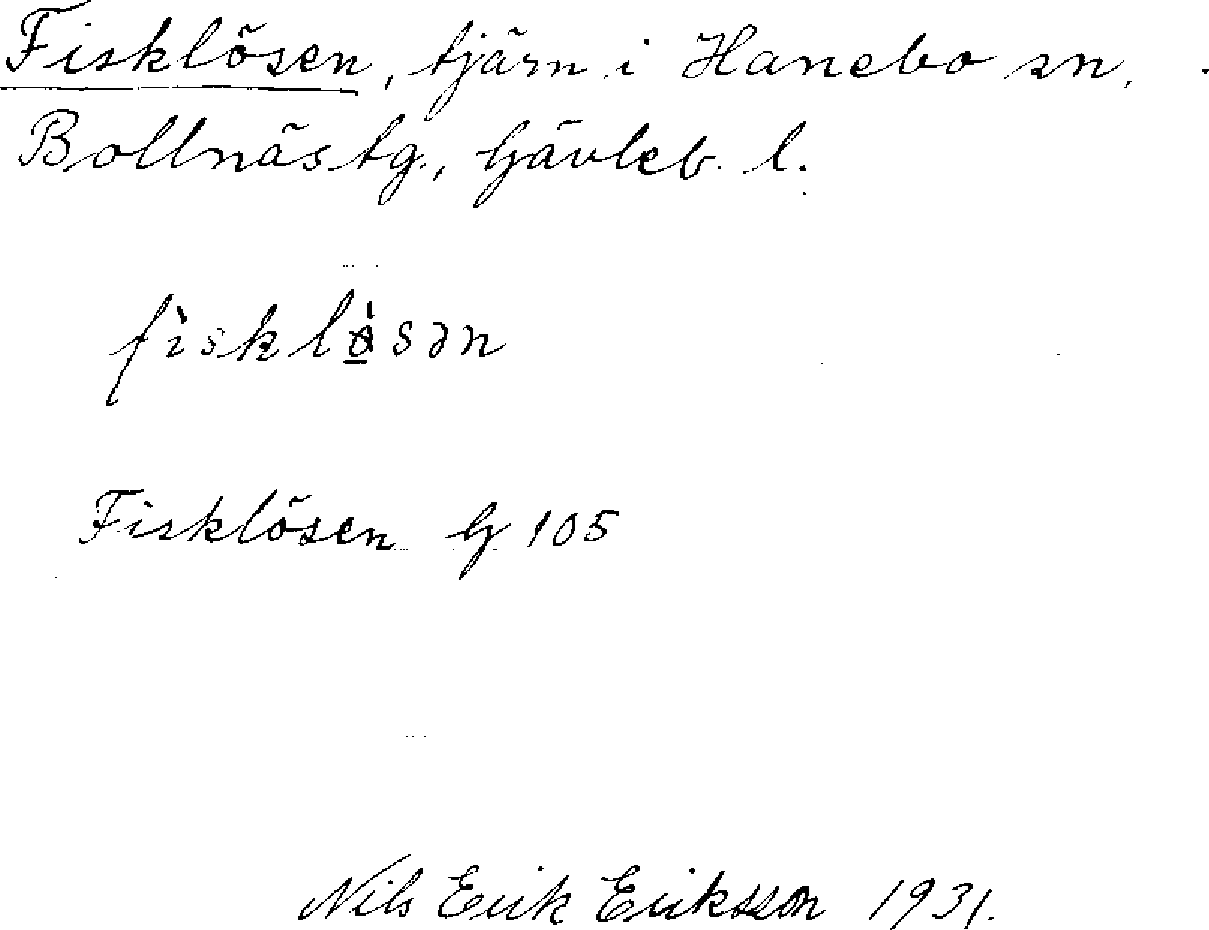 Fisklösen, tjärn i Hanebo sn,
Bollnäs tg., Gävleb. l.
fìsklø̀sən
Fisklösen G 105
Nils Erik Eriksson 1931.